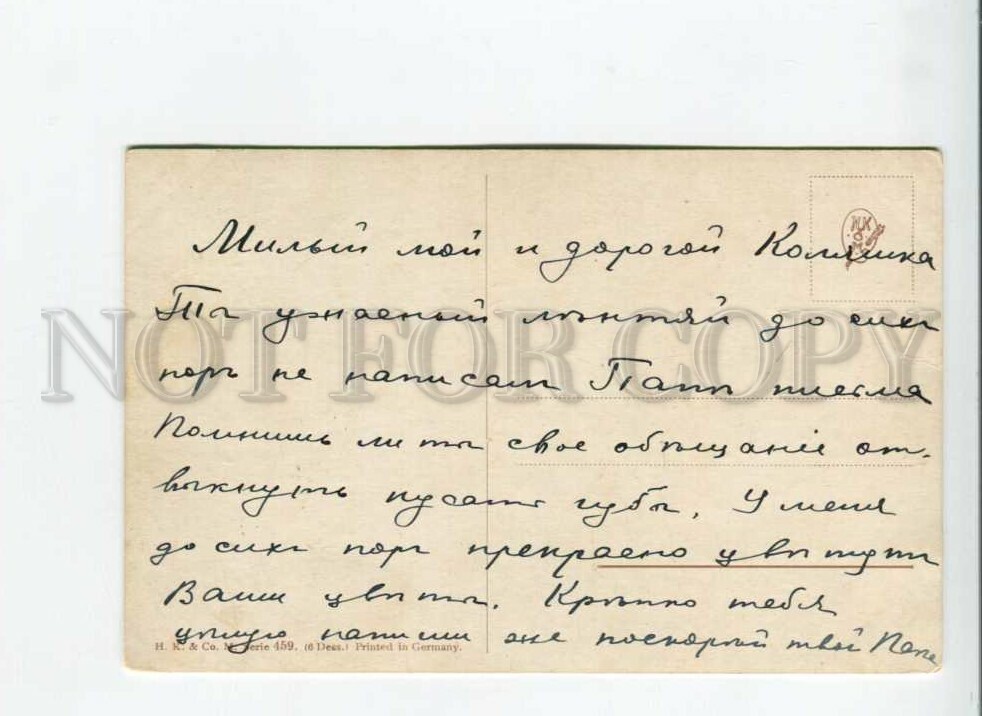 Милый мой и дорогой Колюшка
Ты ужасный лѣнтяй до сихъ
поръ не написалъ Папѣ письма
Помнишь ли ты свое обѣщаніе от-
выкнуть кусать губы. У меня
до сихъ поръ прекрасно цвѣтутъ
Ваши цвѣты. Крѣпко тебя
цѣлую напиши же поскорѣй твой Папа
H. K. & Co. M. Serie 459. (6 Dess.) Printed in Germany.
NOT FOR COPY